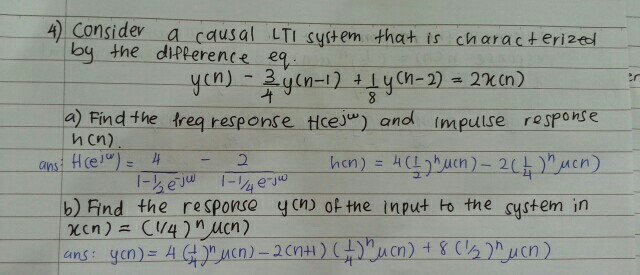 4) Consider a causal LTI system that is characterized
by the difference eq.
y(n) - 3/4 y(n-1) + 1/8 y(n-2) = 2x(n)
a) Find the freq response H(e^jω) and impulse response
h(n).
ans: H(e^jω) = 4/(1-1/2 e^-jω) - 2/(1-1/4 e^-jω) h(n) = 4(1/2)^n u(n) - 2(1/4)^n u(n)
b) Find the response y(n) of the input to the system in
x(n) = (1/4)^n u(n)
ans: y(n) = 4(1/4)^n u(n) - 2(n+1)(1/4)^n u(n) + 8(1/2)^n u(n)